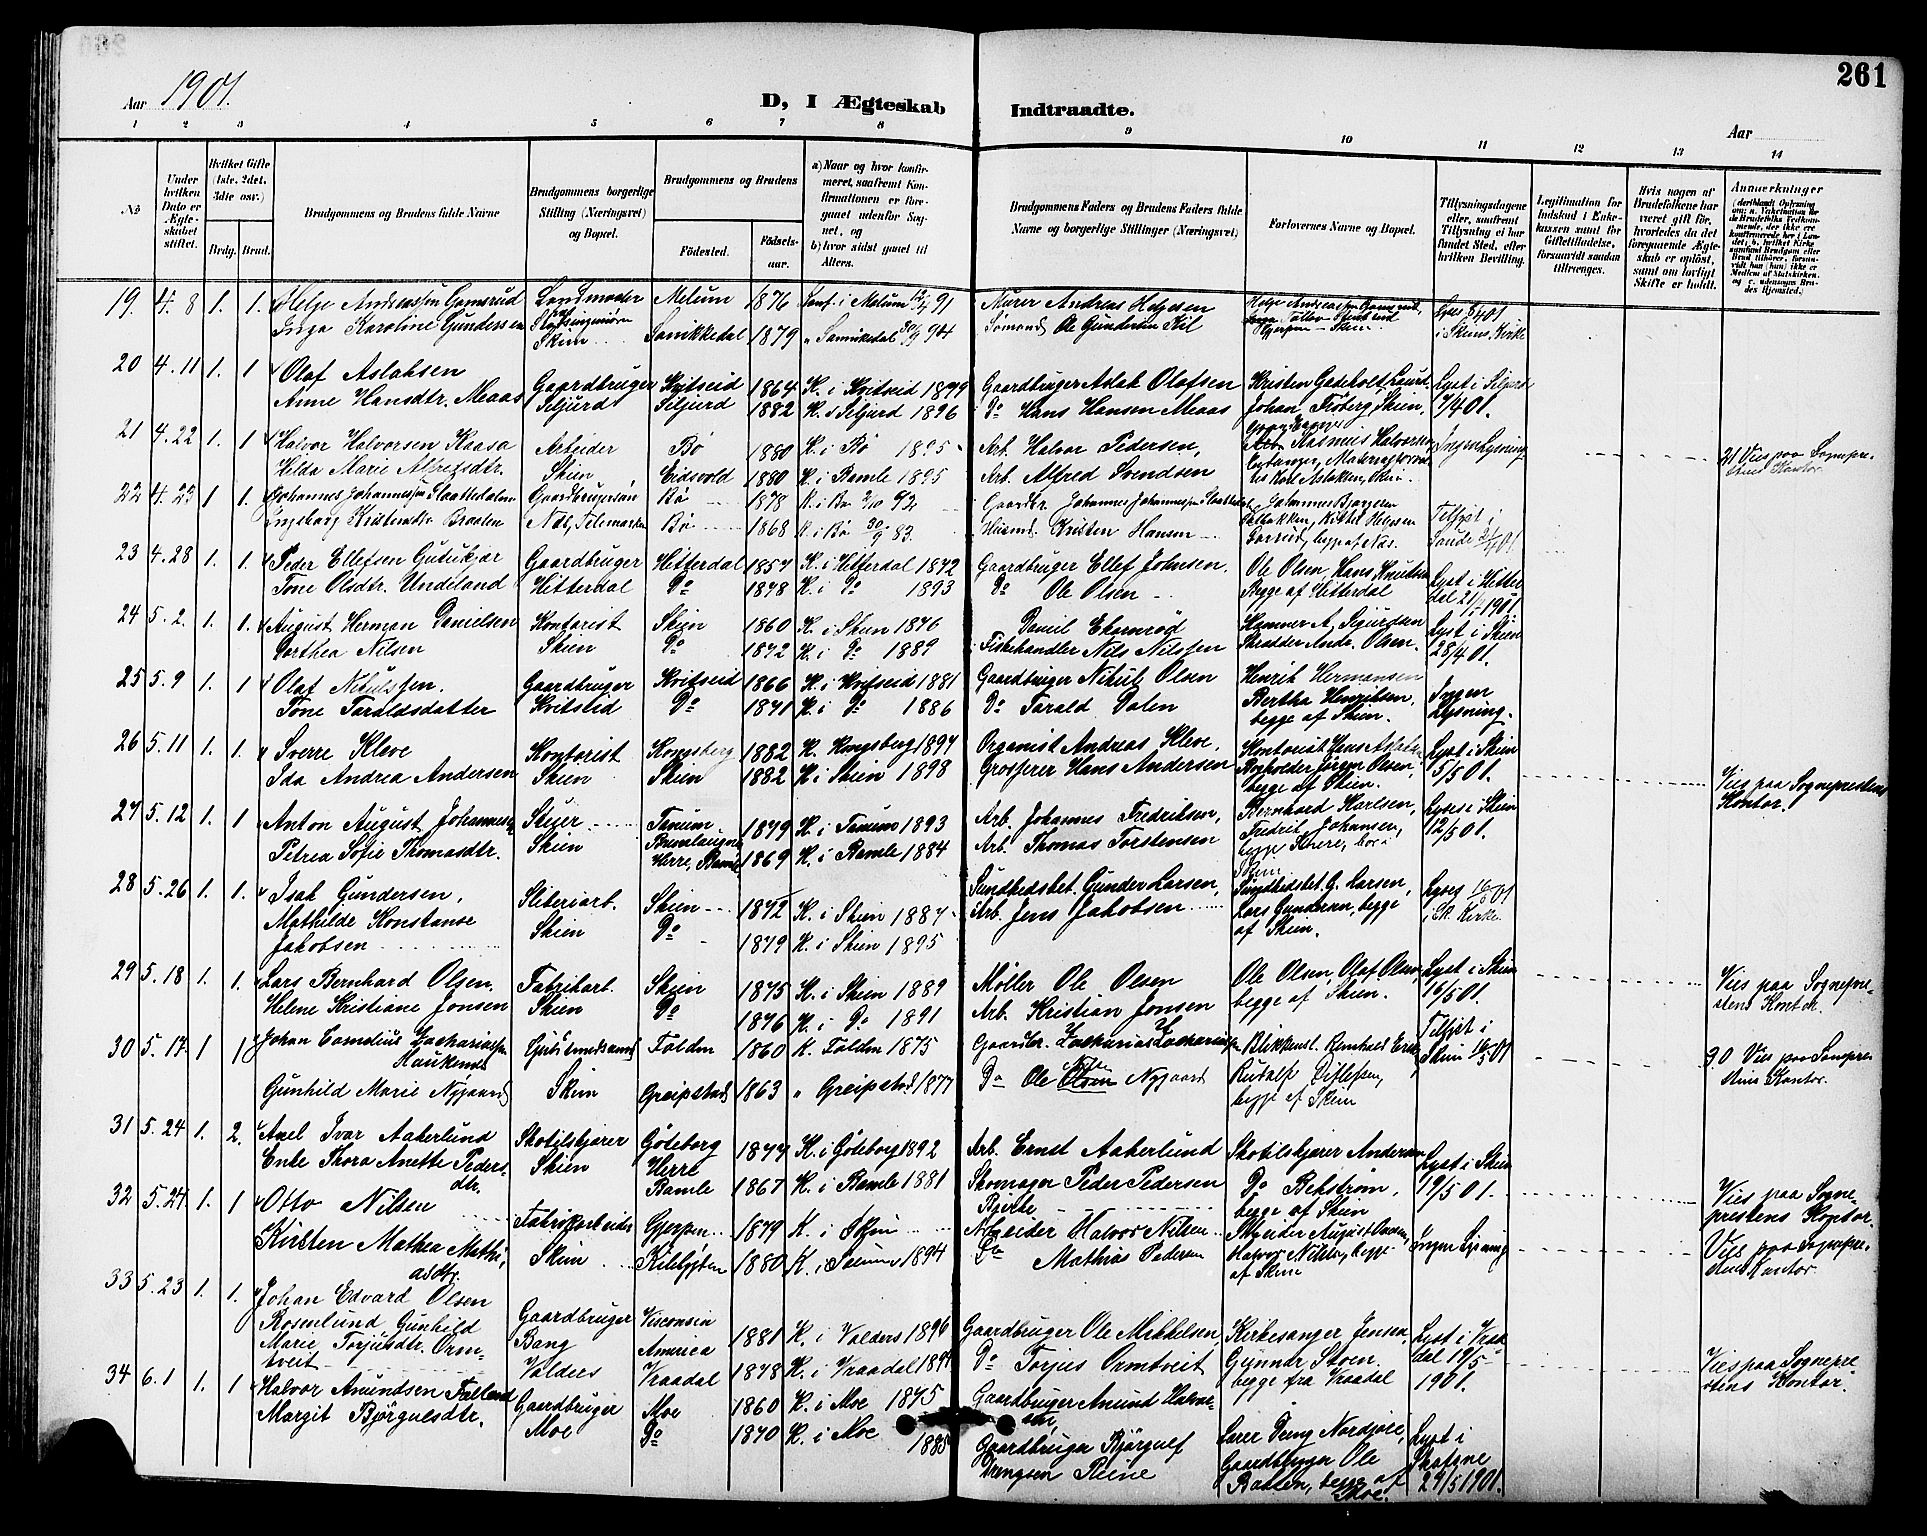 261
Aar 1901.
D, I Ægteskab Indtraadte.
Aar
1 2 3 4 5 6 7 8 9 10 11 12 13 14
No
Under hvilken Dato er Ægteskabet stiftet.
Hvilket Gifte (1ste, 2det, 3die osv.)
Brdg. Brud.
Brudgommens og Brudens fulde Navne
Brudgommens borgerlige Stilling (Næringsvei) og Bopæl.
Brudgommens og Brudens
Fødested. Fødselsaar.
a) Naar og hvor konfirmeret, saafremt Konfirmationen er foregaaet udenfor Sognet, og
b) hvor sidst gaaet til Alters.
Brudgommens Faders og Brudens Faders fulde Navne og borgerlige Stillinger (Næringsvei)
Forlovernes Navne og Bopæl.
Tillysningsdagene eller, saafremt Tillysning ei har fundet Sted, efter hvilken Bevilling.
Legitimation for Indskud i Enkekassen samt for Giftetilladelse, forsaavidt saadan tiltrænges.
Hvis nogen af Brudefolkene har været gift før, hvorledes da det foregaaende Ægteskab er opløst, samt om lovligt Skifte er holdt.
Anmerkninger
19. 4. 8 1. 1. Helje Andreassøn Gomsrud Landmaaler Melum 1876 Conf. i Melum 91 Murer Andreas Helgesen
Inga Karoline Gundersen Skien Sannikedal 1879 " Sannikedal 94 Sømand Ole Gundersen Kil i Skiens Kirke
20 4. 11 1. 1 Olaf Aslaksen Gaardbruger Kvitseid 1864 K. i Kvitseid 1879 Gaardbruger Aslak Olafsen Kristen Gadeholt, Laurd Lyst i Siljord
Anne Hansdtr. Moaas Siljord Siljord 1882 K. i Siljord 1896 Do Hans Hansen Moaas Johan Froberg, Skien, 7/4 01.
21 4. 22 1. 1 Halvor Halvorsen Kaasa Arbeider Bø 1880 K. i Bø 1895 Arb. Halvor Pedersen, Rasmus Halvorsen Ingen Lysning 21 Vies paa Sognepre-
Hilda Marie Alfredsdtr. Skien Eidsvold 1880 K. i Bamle 1895 Arb. Alfred Svendsen Karl Aslaksen, Skien. stens Kontor.
22 4. 23 1 1. Johannes Johannessen Slaattedalen Gaardbrugersøn Bø 1878 K. i Bø 93 Gaardbr. Johannes Johannessen Slaattedalen Tillyst i
Ingeborg Kristensdtr. Braaten Næs, Telemarken Bø 1868 K. i Bø 30/9 83. Husmd. Kristen Hansen begge af Næs.
23 4. 28 1. 1. Peder Ellefsen Gutukjær Gaardbruger Hitterdal 1857 K. i Hitterdal 1872 Gaardbruger Ellef Johnsen. Ole Olsen, Hans Knutsen Lyst i Hitter-
Tone Olsdtr. Undeland Hitterdal Do 1878 K. i Do 1893 Do Ole Olsen Begge af Hitterdal dal 21/4 1901.
24 5. 2. 1. 1. August Herman Danielsen Kontorist Skien 1860 K. i Skien 1876 Daniel Ekornrød Hammer A. Sigurdsen Lyst i Skien
Dorthea Nilsen Skien Do 1872 K. i Do 1889 Fiskehandler Nils Nilssen Skrædder Andr. Olsen. 28/4 01.
25 5. 9 1. 1 Olaf Nikulssen. Gaardbruger Kvitseid 1866 K. i Kvitseid 1881 Gaardbruger Nikul Olsen Henrik Hermansen Ingen
Tone Taraldsdatter Kvitseid Do 1871 K. i Do 1886 Do Tarald Dalen Bertha Henriksen, begge af Skien. Lysning.
26 5. 11 1. 1. Sverre Kleve Kontorist Kongsberg 1882 K. Kongsberg 1897 Organist Andreas Kleve, Kontorist Lyst i Skien
Ida Andrea Andersen Skien Skien 1882 K. i Skien 1898 Grosserer Hans Andersen Bogholder Jørgen Olsen, begge af Skien. 5/5 01. Vies paa Sogneprestens Kontor.
27 5. 12 1. 1 Anton August Johannesen Stuer Tanum Brunlaugnes 1879 K. i Tanum 1893 Arb. Johannes Fredriksen, Bernhard Karlsen, Lyses i Skien
Petrea Sofie Thomasdtr. Skien Herre, Bamle 1869 K. i Bamle 1884 Arb. Thomas Torstensen Fredrik Johansen, begge 12/5 01.
28 5. 26 1. 1. Isak Gundersen, Sliberiarb. Skien 1872 K. i Skien 1887 Sundhedsbet. Gunder Larsen, Sundhedsbet. G. Larsen, Lyses
Mathilde Konstanse Jakobsen Skien Do 1879 K. i Skien 1895 Arb. Jens Jakobsen Lars Gundersen, begge af Skien. i Sk. Kirke
29 5. 18 1. 1. Lars Bernhard Olsen. Fabrikarb. Skien 1875 K. i Skien 1889 Møller Ole Olsen Ole Olsen, Olaf Olsen, Lyst i Skien Vies paa Sognepre-
Helene Kristiane Jonsen Skien Do 1876 K. i Do 1891 Arb. Kristian Jonsen begge af Skien. 16/5 01. stens Kontor.
30 5. 17. 1 1 Johan Cornelius Zachariassen Haukenes Folden 1860 K. Folden 1875 Gaardbr. Zacharias Zachariassen Tillyst i Skien 16/5 01 30 Vies paa Sognepre-
Gunhild Marie Nygaard Skien Greipstad 1863 " Greipstad 1877 Do Ole Nygaard Rudolf Ditlefsen, begge af Skien stens Kontor.
31 5. 24 1. 2. Axel Ivar Aakerlund Skotilskjærer Göteborg 1874 K. i Göteborg 1892 Arb. Ernst Aakerlund Skotilskjærer Andersen Lyst i Skien
Enke Thora Anette Pedersdtr. Skien Herre Bamle 1867 K. i Bamle 1881 Skomager Peder Pedersen Bjerke Do Bekstrøm, begge af Skien 19/5 01. Vies paa Sogneprestens Kontor.
32 5. 24. 1. 1 Otto Nilsen Fabrikarbeider Gjerpen 1879 K. i Skien Arbeider Halvor Nilsen Arbeider August Ingen Lysning Vies paa Sognepre-
Kirsten Mathea Mathiasdtr. Skien Kilebygden 1880 K. i 1894 Do Mathias Pedersen Halvor Nilsen, begge af Skien stens Kontor.
33 5. 23 1. 1. Johan Edvard Olsen Rosenlund Gaardbruger Bang Valders Visconsin America 1881 K. i Valders 1896 Gaardbruger Ole Mikkelsen, Kirkesanger Jensen, Lyst i Vraadal 19/5 1901.
Gunhild Marie Torjusdtr. Ormtveit Vraadal 1878 K. i Vraadal 1894 Do Torjus Ormtveit Gunnar Stoen. begge fra Vraadal Vies paa Sogneprestens Kontor.
34 6. 1 1. 1 Halvor Amundsen Gaardbruger Moe 1860 K. i Moe 1875 Gaardbruger Amund Halvorsen, Lærer Dreng Nordjore, Lyst i
Margit Bjørgulfsdtr. Moe Do 1870 K. i Moe 1885 Gaardbruger Bjørgulf Drengsen Gaardbruger Ole begge af Moe. Skafsne 29/5 1901.